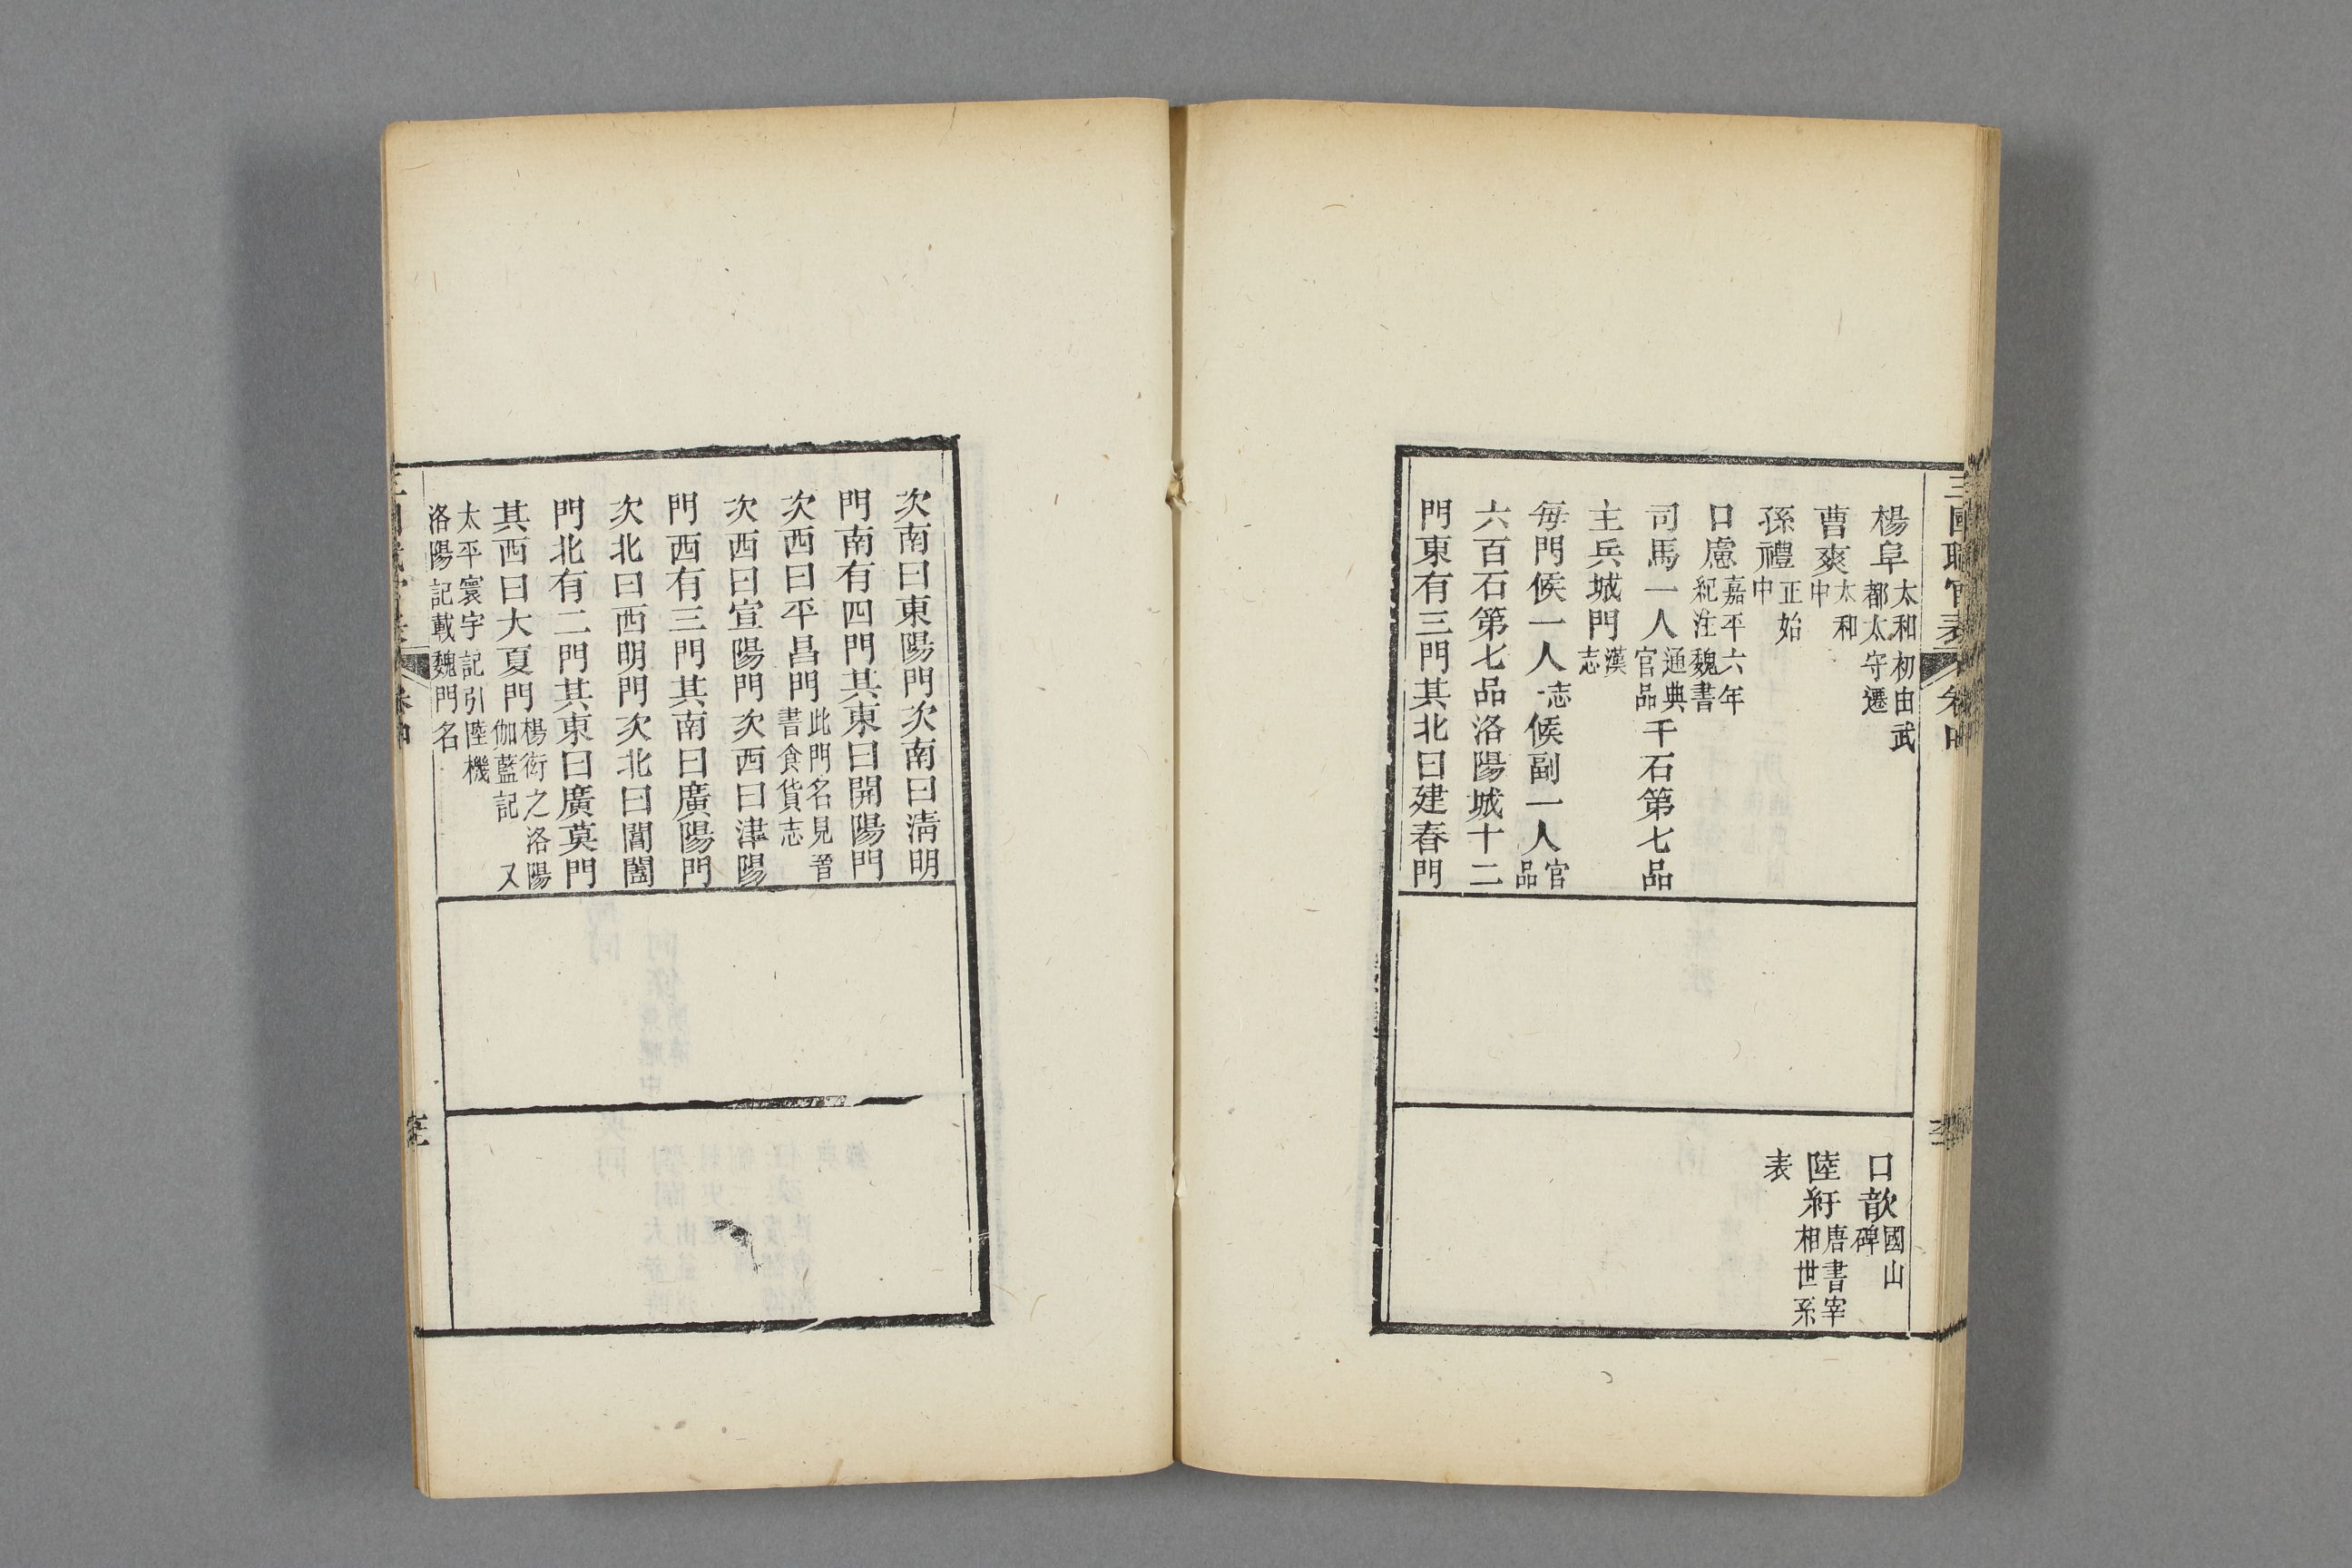 三國職官表 卷中
楊阜太和初由武都太守遷
曹爽太和中
孫禮正始中
口慮嘉平六年紀注魏書
司馬一人通典官品千石第七品
主兵城門漢志
每門候一人志一候副一人官品
六百石第七品洛陽城十二
門東有三門其北曰建春門
口歆國山碑
陸紆唐書宰相世系
表
次南曰東陽門次南曰清明
門南有四門其東曰開陽門
次西曰平昌門此門名見晉書食貨志
次西曰宣陽門次西曰津陽
門西有三門其南曰廣陽門
次北曰西明門次北曰閶闔
門北有二門其東曰廣莫門
其西曰大夏門楊衒之洛陽伽藍記 又
太平寰宇記引陸機洛陽記載魏門名